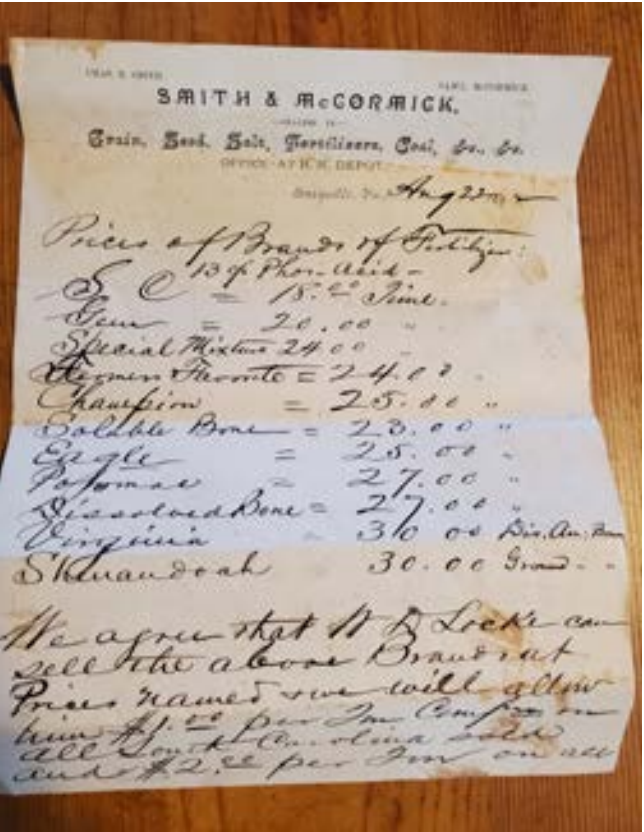 CHAS. E. SMITH SAM'L McCORMICK
SMITH & McCORMICK,
—DEALERS IN—
Grain, Seed, Salt, Fertilizers, Coal, &c., &c.
OFFICE AT R. R. DEPOT.
Aug 22
Prices of Brands of Fertilizer:
13 % Phos. Acid –
S C = 18.00
Gem = 20.00 "
Special Mixture 24 00 "
Farmers Favorite = 24.00 "
Champion = 25.00 "
Soluble Bone = 23.00 "
Eagle = 25.00 "
Potomac = 27.00 "
Dissolved Bone = 27.00 "
Virginia 30 00 Dis. An. Bone
Shenandoah 30.00 Ground " "
We agree that W D Locke can
sell the above Brands at
Prices named & we will allow
him $1.00 per Ton on
all South Carolina sold
and $2.00 per Ton on all